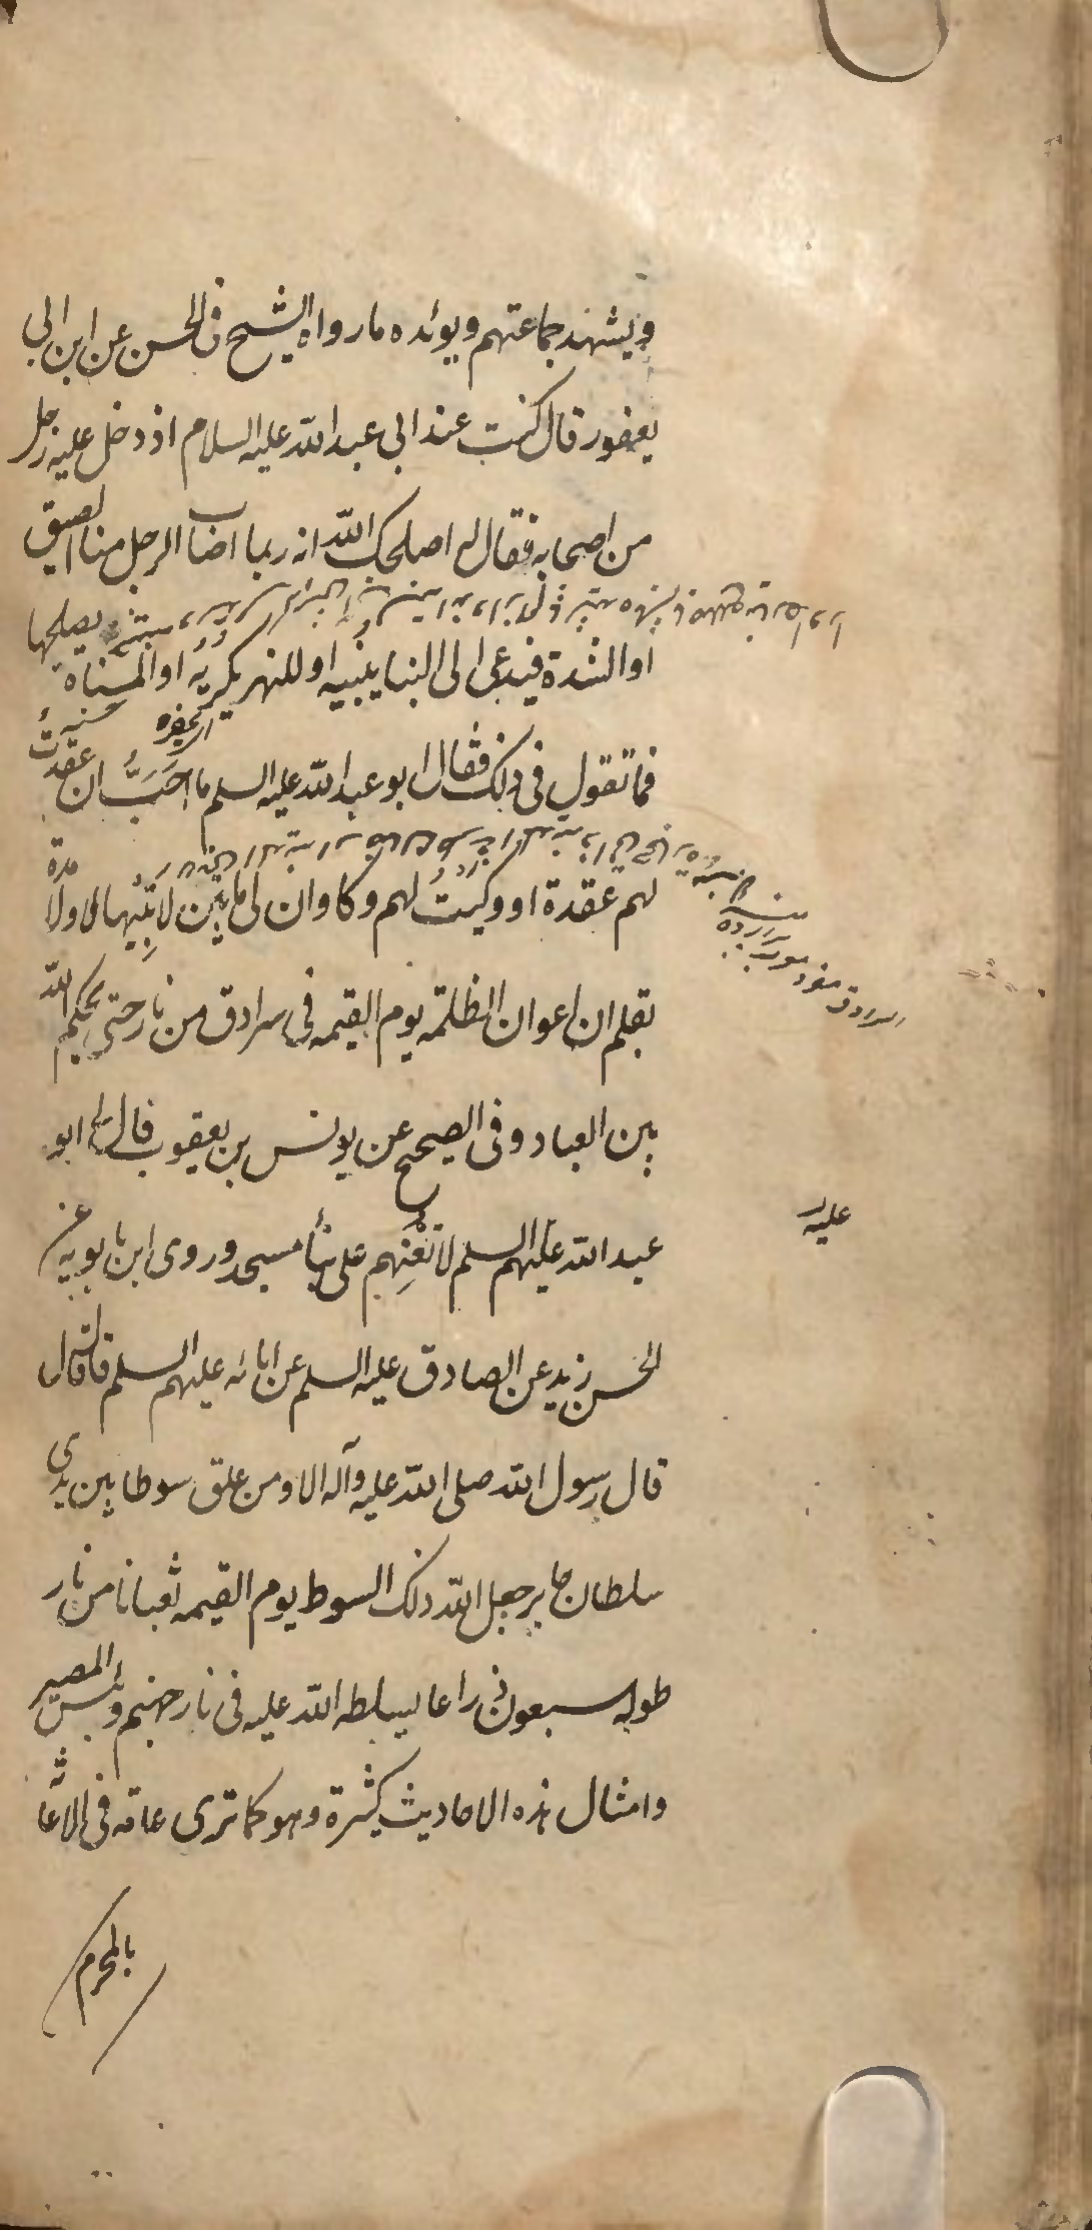 ويشهد جماعتهم ويؤيده ما رواه الشيخ في الحسن عن ابن ابي
يعفور قال كنت عند ابي عبد الله عليه السلام اذ دخل عليه رجل
من اصحابه فقال له اصلحك الله انه ربما اصاب الرجل منا الضيق
او الشدة فيدعى الى البنا يبنيه او للنهر يكريه او المسناة يصلحها
اي يحفره
فما تقول في ذلك فقال ابو عبد الله عليه السلم ما احب ان عقدت
لهم عقدة او وكيت لهم وكا وان لي ما بين لابتيها لا ولا مدة
بقلم ان اعوان الظلمه يوم القيمه في سرادق من نار حتى يحكم الله
بين العباد وفي الصحيح عن يونس بن يعقوب قال لي ابو
عبد الله عليهم السلم لا تعنهم على بنا مسجد وروى ابن بابويه عن
عليه
الحسن زيد عن الصادق عليه السلم عن ابائه عليهم السلم قال قال
قال رسول الله صلى الله عليه وآله الا ومن علق سوطا بين يدي
سلطان جاير جعل الله ذلك السوط يوم القيمه ثعبانا من نار
طوله سبعون ذراعا ليسلطه الله عليه في نار جهنم وبئس المصير
وامثال هذه الاحاديث كثيرة وهو كما ترى عامه في الاعا
بالمحرم